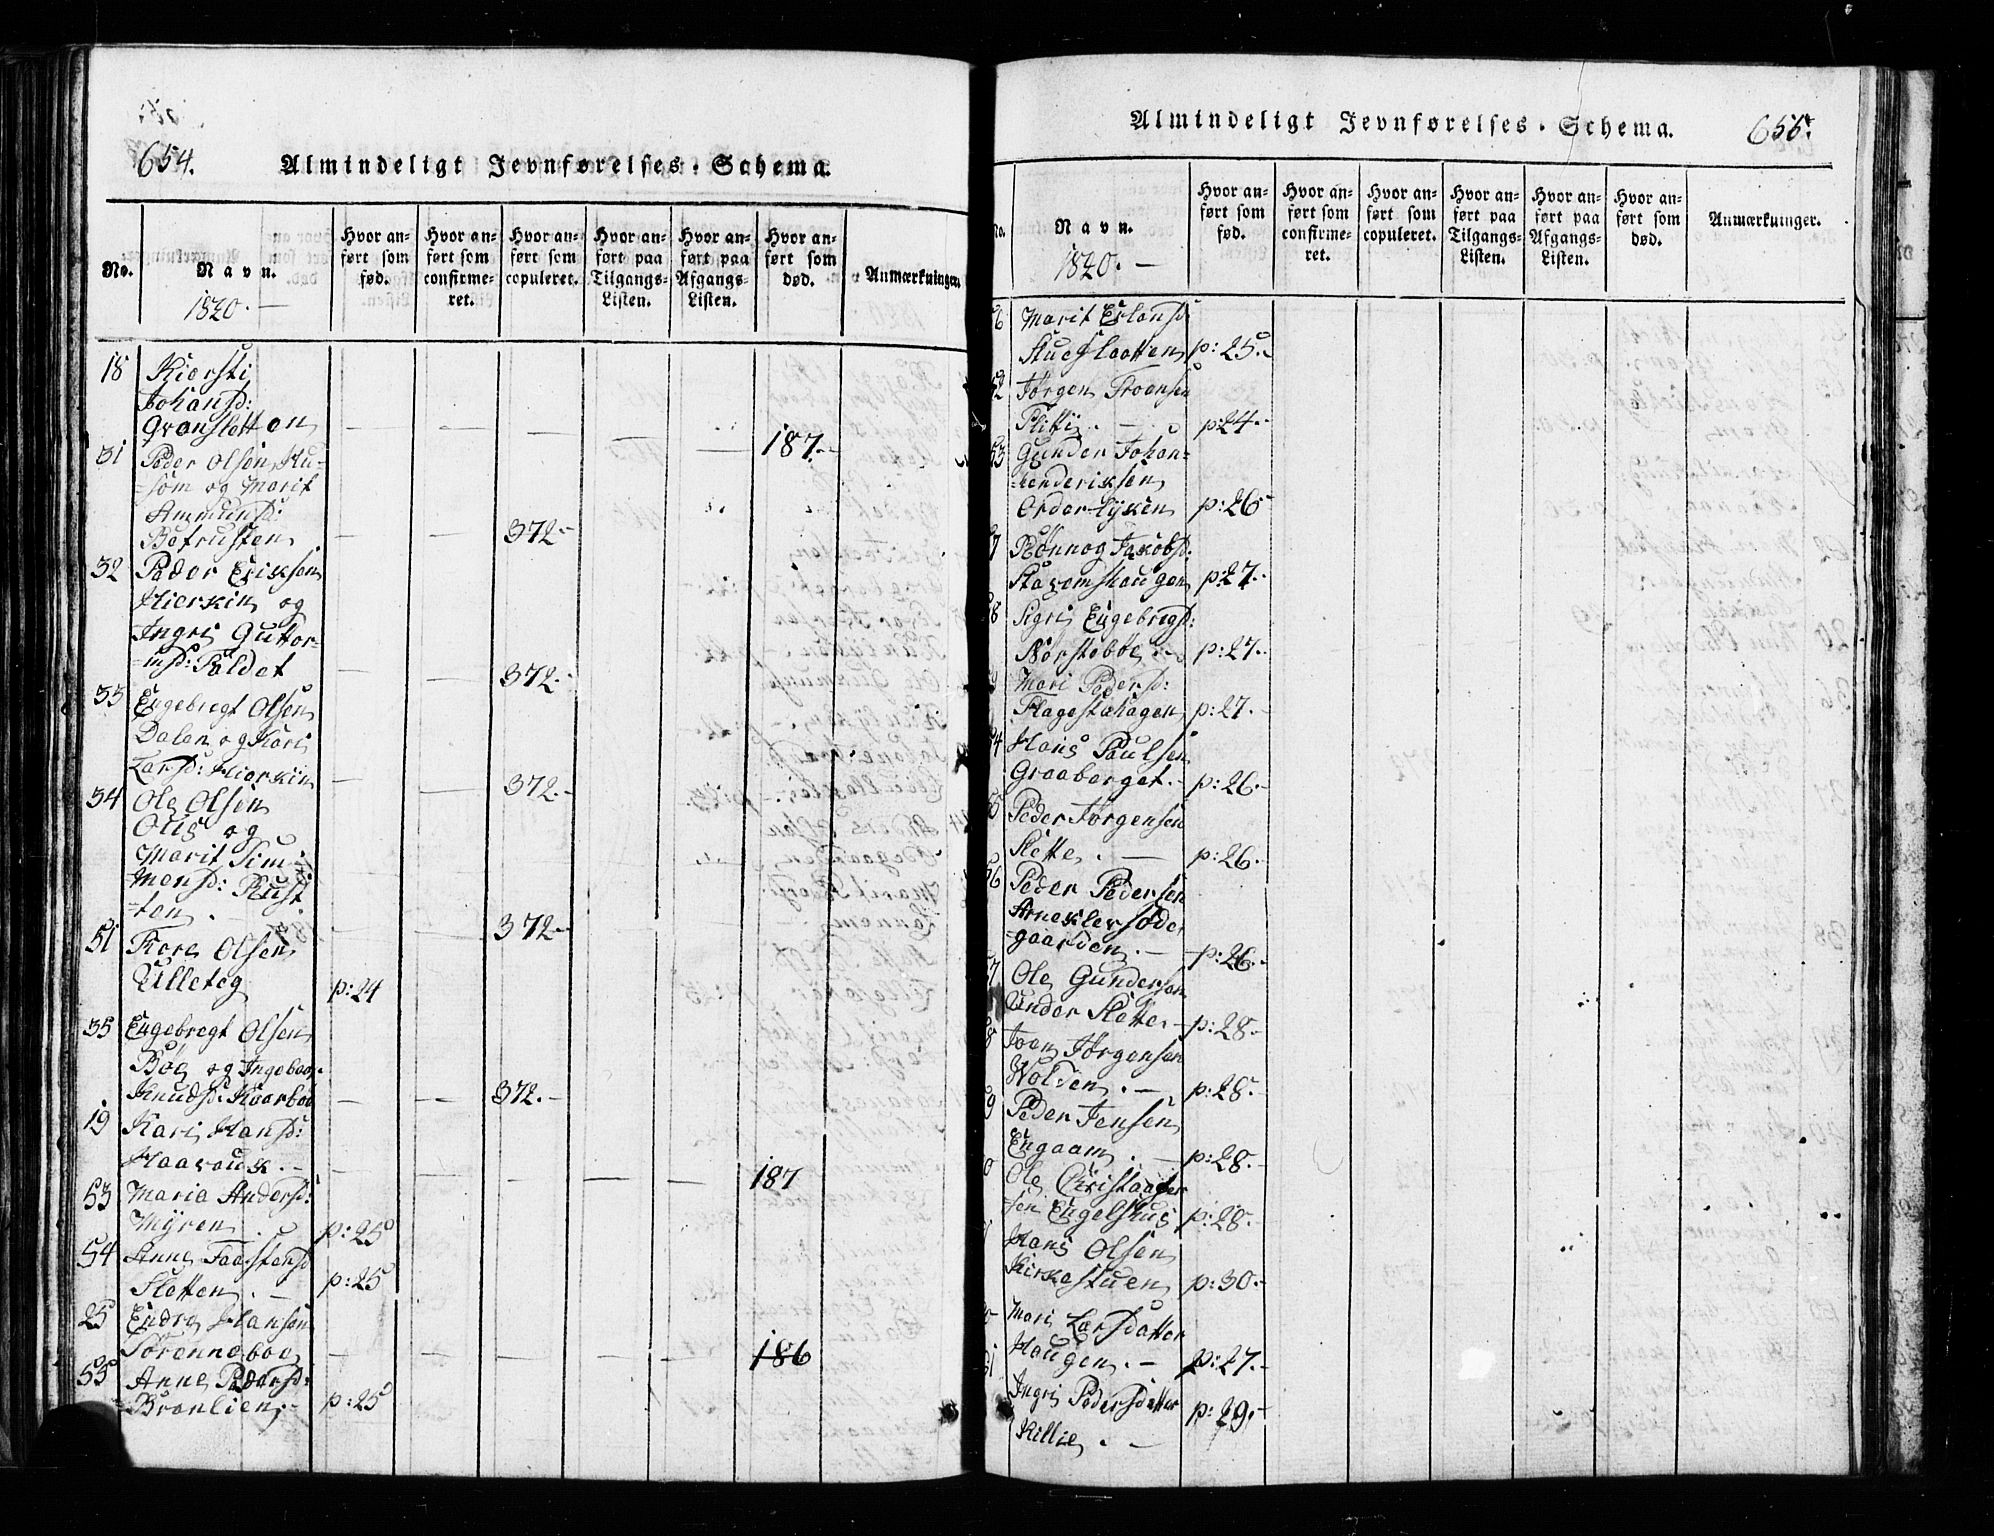 654.
Almindeligt Jevnførelses-Schema.
No.
Navn.
1820.
Hvor anført som fød.
Hvor anført som confirmeret.
Hvor anført som copuleret.
Hvor anført paa Tilgangs-Listen.
Hvor anført paa Afgangs-Listen.
Hvor anført som død.
Anmærkninger.
18 Kiersti
Johansd:
Grønsletten 187.
31 Peder Olsen
og Marit
Ammunsd:
372.
32 Peder Eriksen
Hierkin og
Ingri Guttor=
=msd: 372.
33 Engebregt Olsen
Dalen og Kari
Larsd: Hierkin 372.
34 Ole Olsen
og
Marit Sim=
=mensd: Rust
=ten 372.
51 Tore Olsen
Ulletog p:24
35 Engebregt Olsen
Bøe og Ingebor
Knudsd: 372.
19 Kari Hansd:
187
53 Maria Andersd:
Myren p:25
54 Anne
Sletten. p:25
25 Endre Hansen
186
55 Anne Pedersd:
Brenlien p:25
655.
Almindeligt Jevnførelses-Schema.
No.
Navn.
1820.
Hvor anført som fød.
Hvor anført som confirmeret.
Hvor anført som copuleret.
Hvor anført paa Tilgangs-Listen.
Hvor anført paa Afgangs-Listen.
Hvor anført som død.
Anmærkninger.
Marit Erlansd:
p:25.
Jørgen
p:24.
Gunder Johan=
=henderiksen
p:26
Rønnog Jakobsd:
Stavemshaugen p:27.
Sigri Engebregtsd:
Norstebbe p:27.
Mari Pedersd:
p:27.
Hans Paulsen
Graaberget. p:26.
Peder Jørgensen
Slette. p:26.
Peder Pedersen
gaarden. p:26.
Ole Gundersen
Under Slette p:28.
Iver Jørgensen
Wolden. p:28.
Peder Jensen
Engaam. p:28.
Ole Christopher
sen Engelshus p:28.
Hans Olsen
Kirkestuen p:30.
Mari Larsdatter
Haugen. p:27.
Ingri Pedersdatter p:29.
Killie.